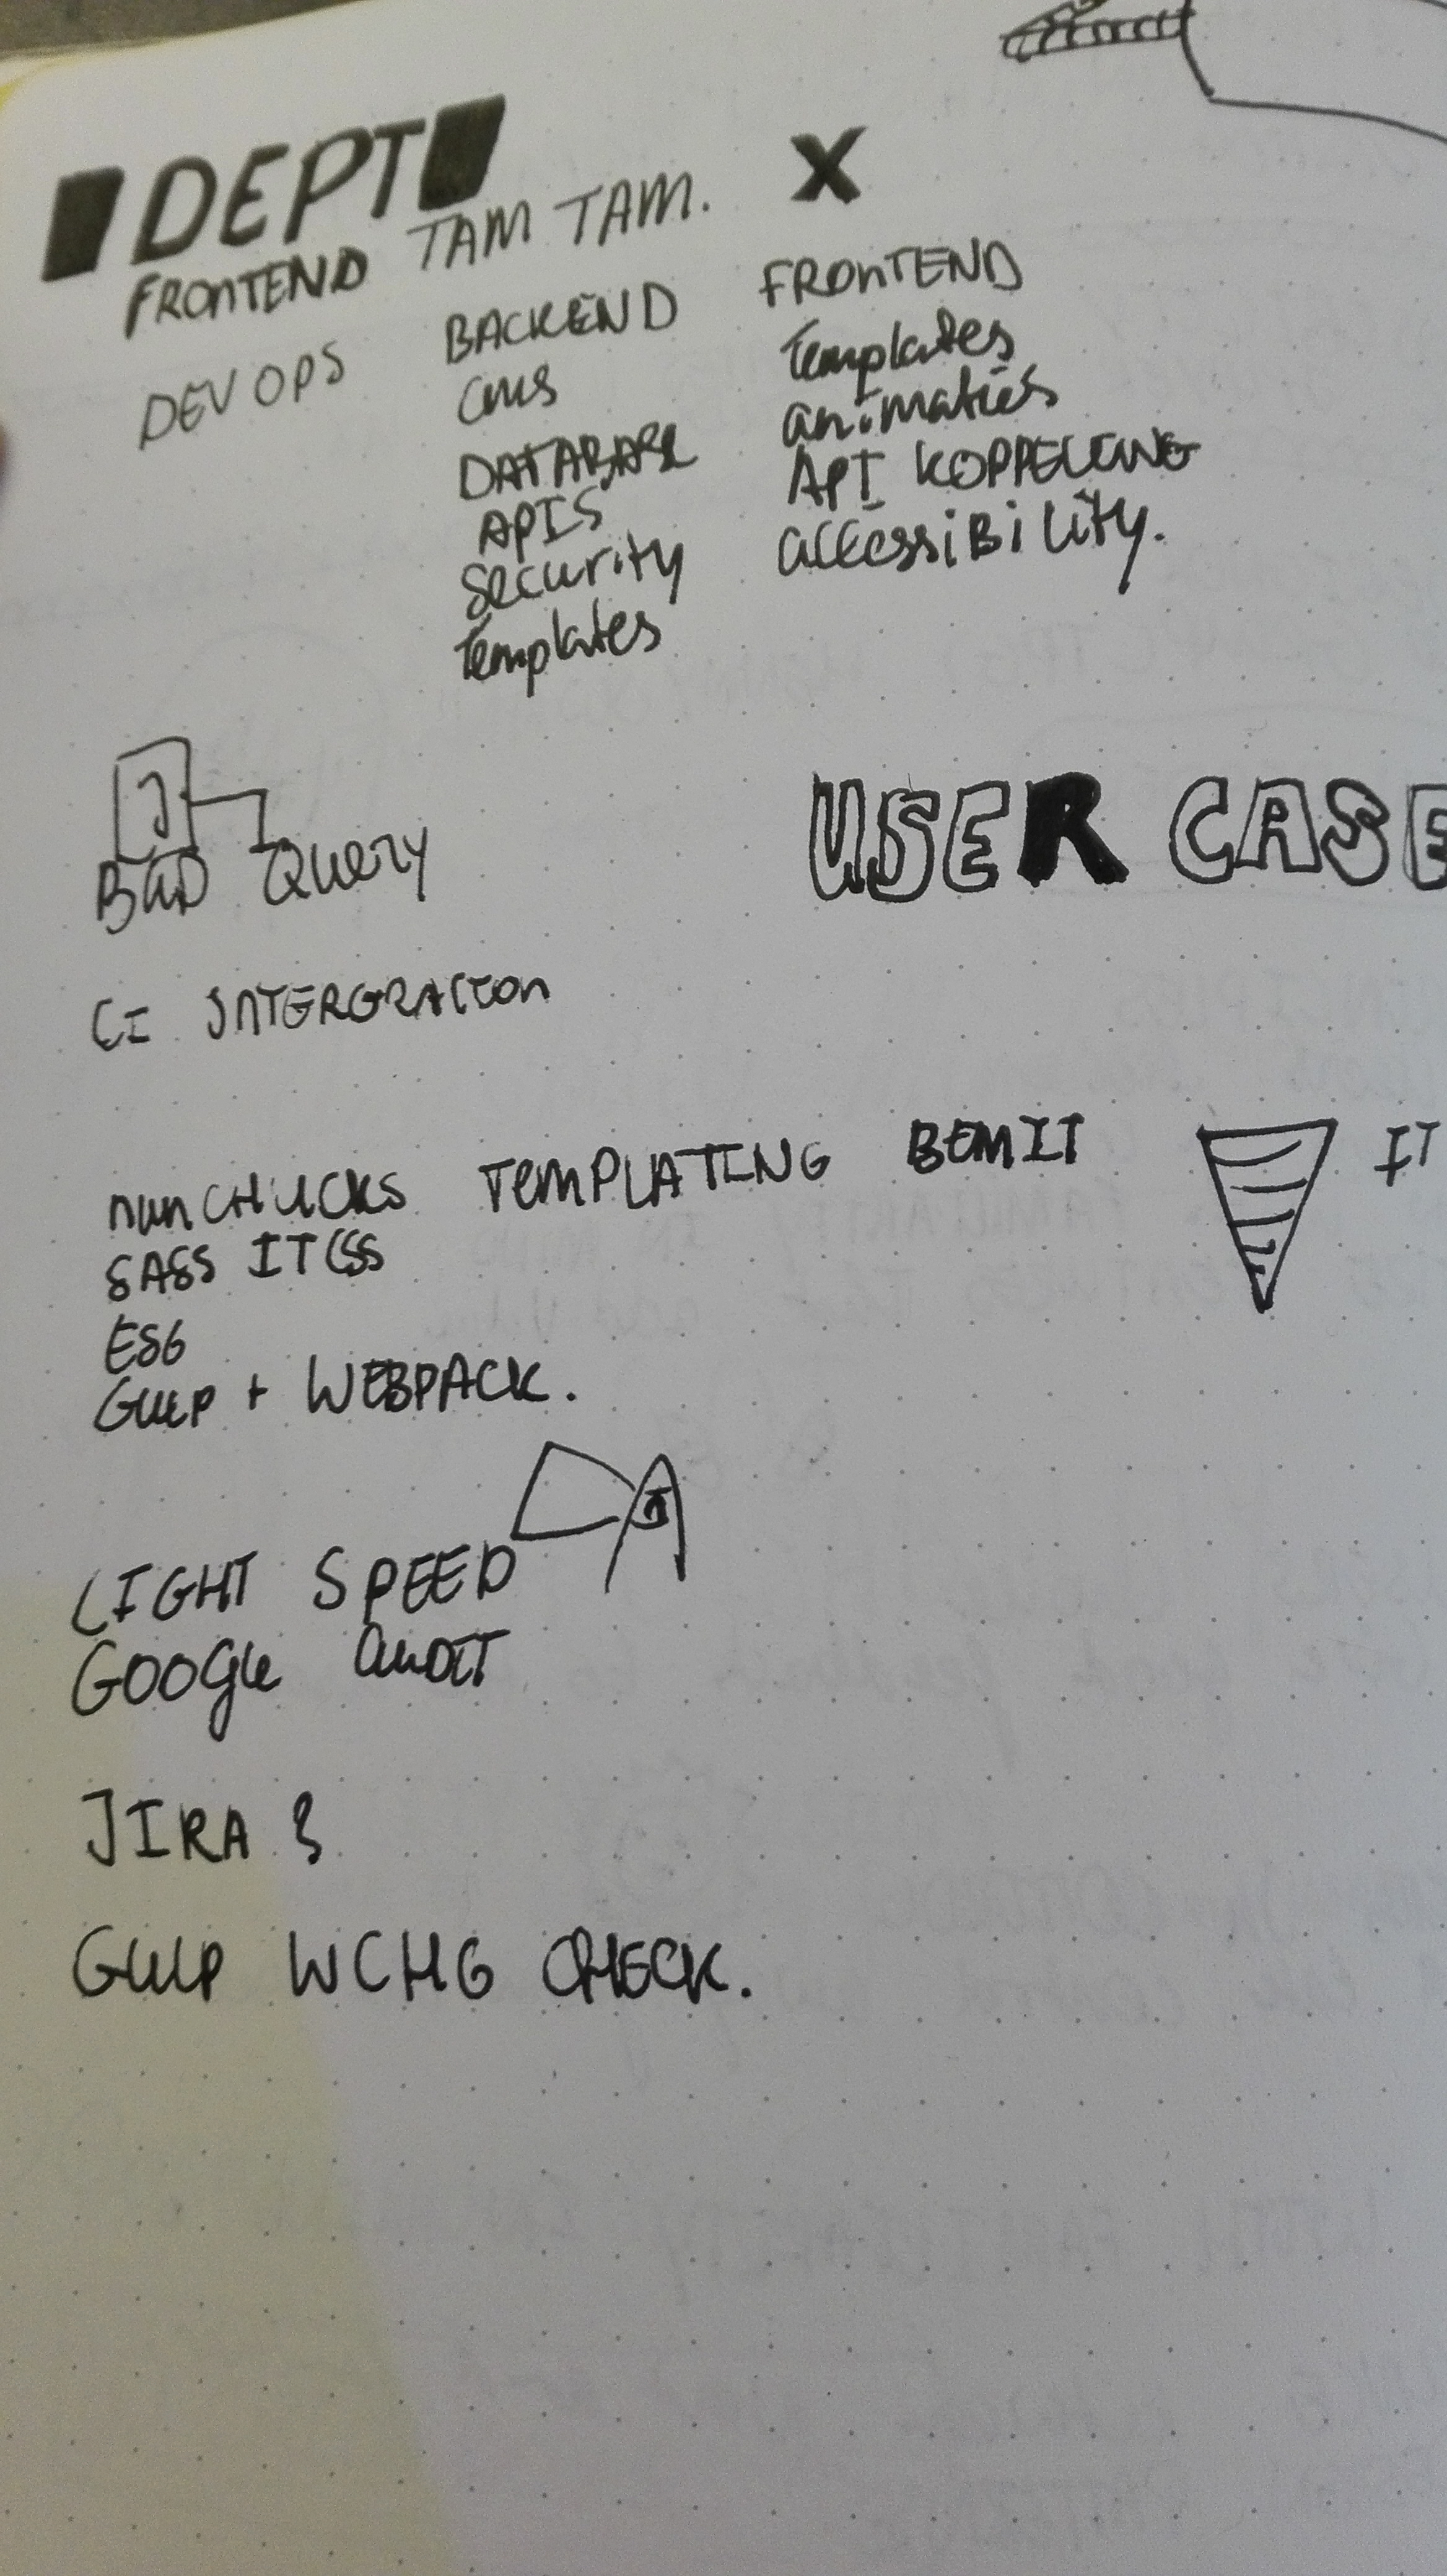 DEPT
FRONTEND TAM TAM. X
DEVOPS
BACKEND
CMS
DATABASE
APIS
Security
Templates
FRONTEND
Templates
animaties
API KOPPELING
accessibility.
BAD Query
USER CASE
CI INTERGRATION
NUNCHUCKS TEMPLATING BEMIT IT
SASS ITCSS
ES6
GULP + WEBPACK.
LIGHT SPEED
GOOGLE AUDIT
JIRA &
GULP WCHG CHECK.